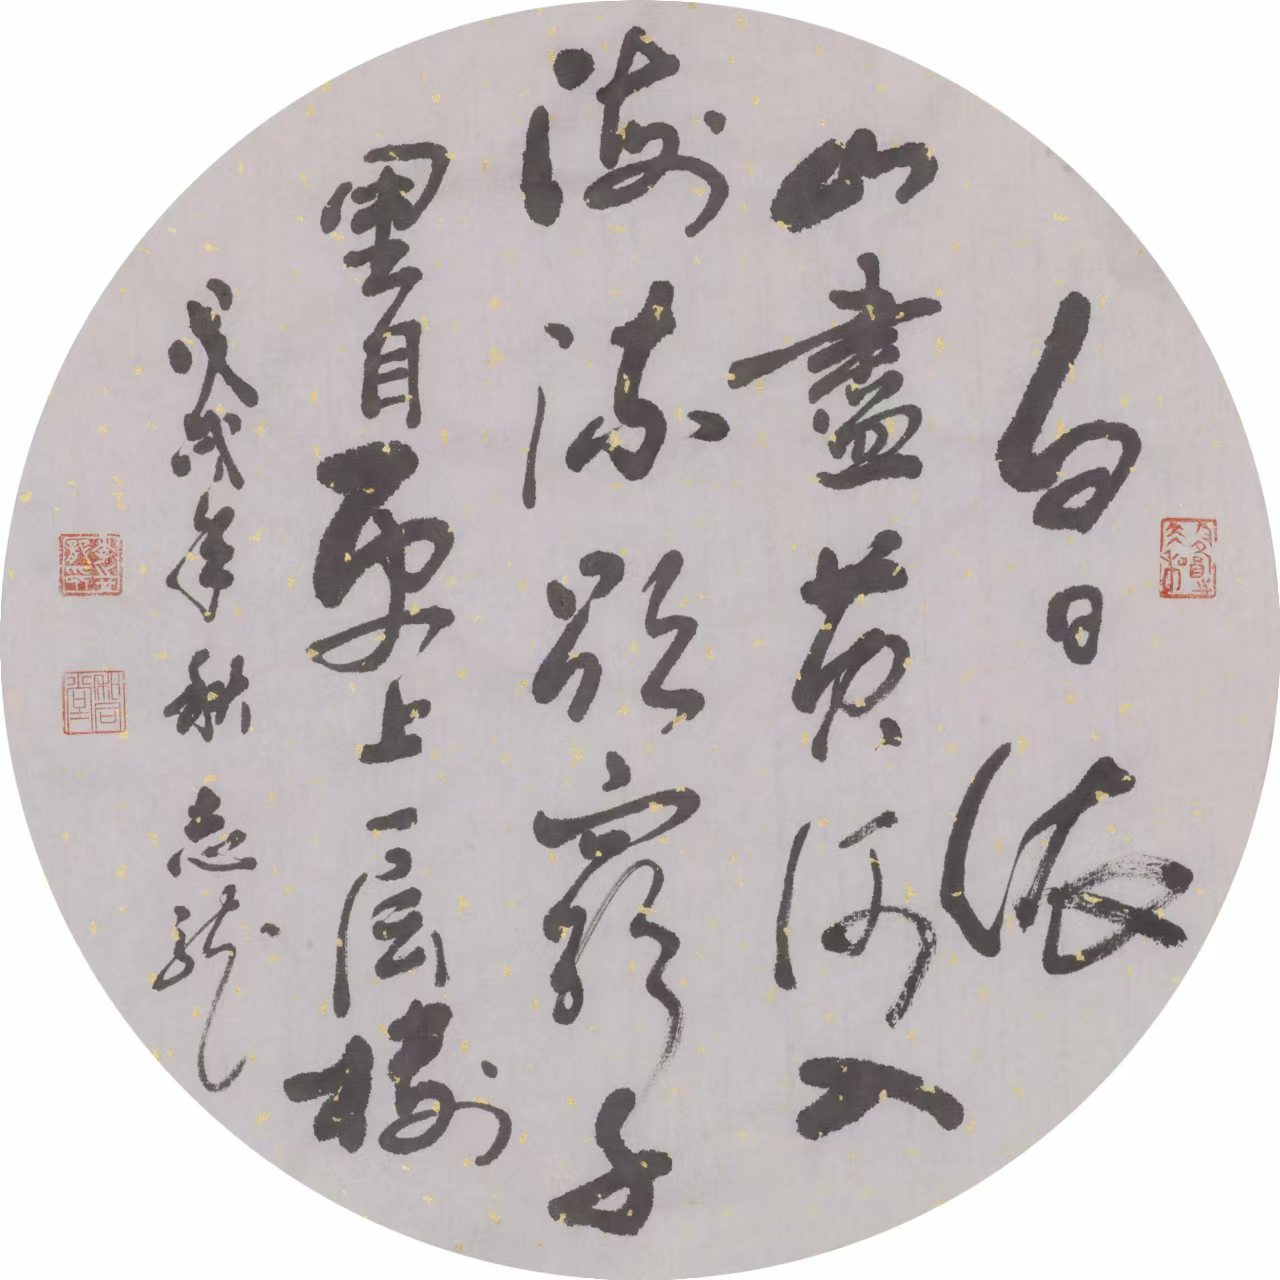 白日依
山盡黄河入
海流欲窮千
里目更上一層樓
戊戌年秋志龍